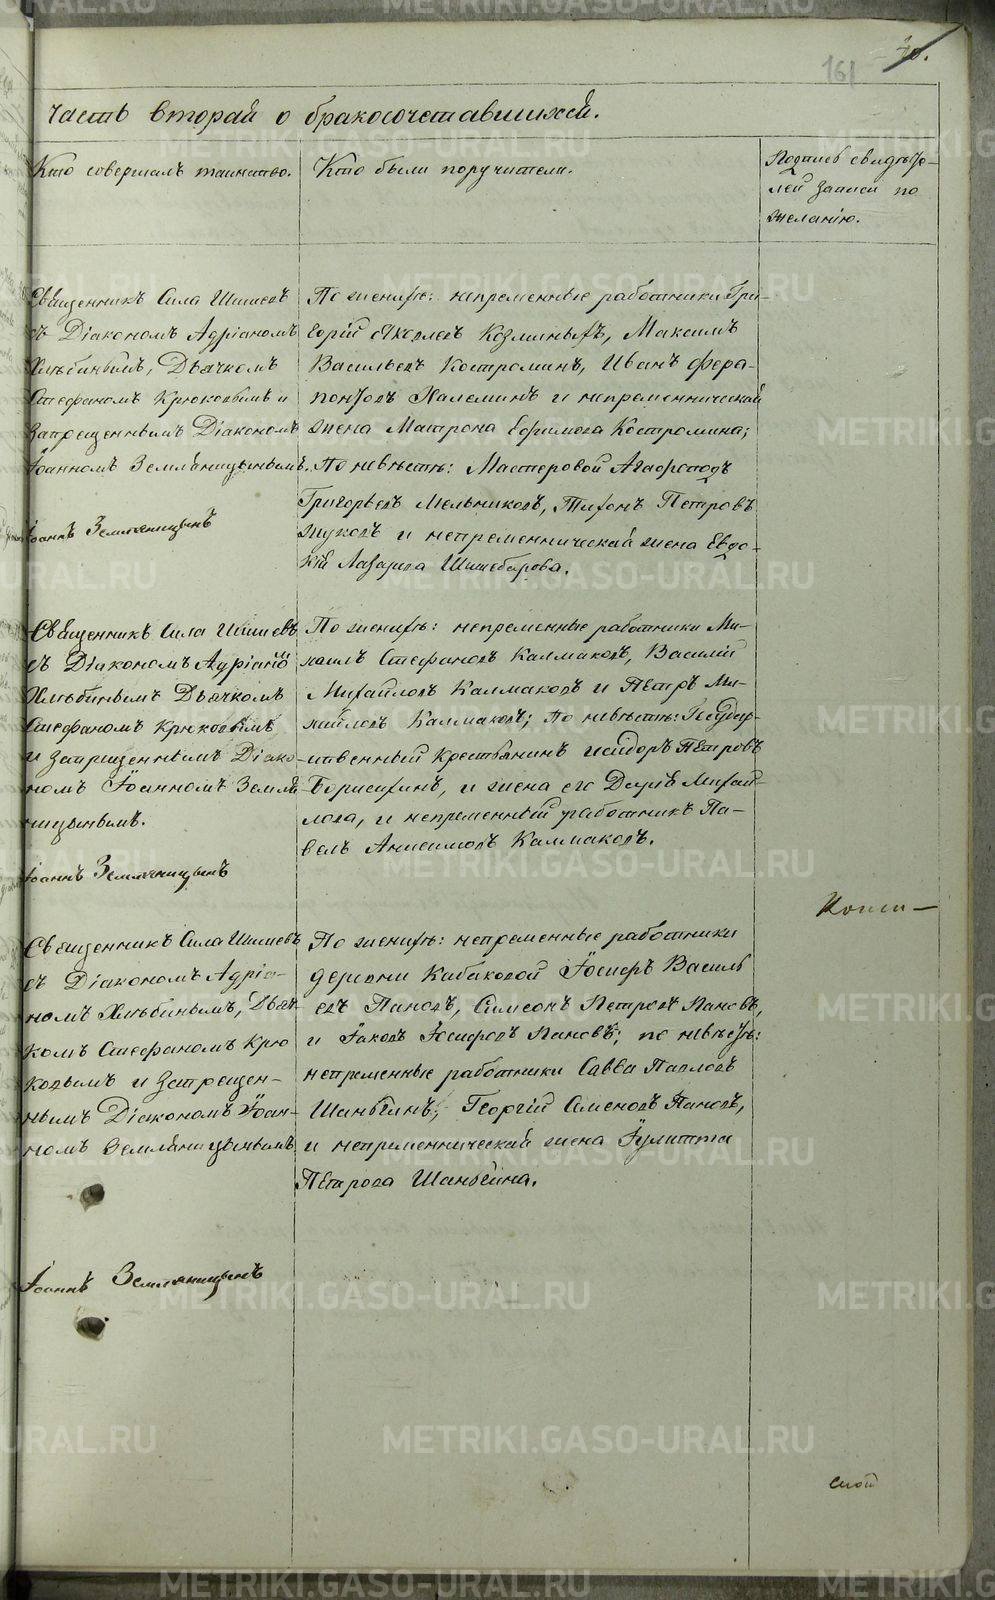 161
70.
Часть вторая о бракосочетавшихся.
Кто совершалъ таинство.
Кто были поручители.
Подпись свидѣте-
лей записи по
желанію.
Священникъ Сила Шишевъ
съ Діакономъ Адріаномъ
Хлѣбинымъ, Дьячкомъ
Стефаномъ Крюковымъ и
Запрещеннымъ Діакономъ
Іоанномъ Земляницынымъ.
Іоаннъ Земляницынъ
По женихѣ: непременные работники Гри-
горій Яковлевъ Козминыхъ, Максимъ
Васильевъ Костроминъ, Иванъ Фера-
понтовъ Халеминъ и непременническая
жена Матрона Ефимова Костромина;
По невѣстѣ: Мастеровой Агафоподъ
Григорьевъ Мельниковъ, Тихонъ Петровъ
Жуковъ и непременническая жена Евдо-
кія Лазарева Шишебарова.
Священникъ Сила Шишевъ
съ Діакономъ Адріаномъ
Хлѣбинымъ Дьячкомъ
Стефаномъ Крюковымъ
и Запрещеннымъ Діако-
номъ Іоанномъ Земля-
ницынымъ.
Іоаннъ Земляницынъ
По женихѣ: непременные работники Ми-
хаилъ Стефановъ Калмаковъ, Василій
Михайловъ Калмаковъ и Петръ Ми-
хайловъ Калмаковъ; по невѣстѣ: Государ-
ственный крестьянинъ Исидоръ Петровъ
Борисихинъ, и жена его Дарья Михай-
лова, и непременный работникъ Па-
велъ Анисимовъ Калмаковъ.
Священникъ Сила Шишевъ
съ Діакономъ Адріа-
номъ Хлѣбинымъ, Дьяч-
комъ Стефаномъ Крю
ковымъ и Запрещен-
нымъ Діакономъ Іоан-
номъ Земляницынымъ
Іоаннъ Земляницынъ
По женихѣ: непременные работники
деревни Кабаковой Іосифъ Василь
евъ Пановъ, Симеонъ Петровъ Пановъ,
и Іаковъ Іосифовъ Пановъ; по невѣстѣ:
непременные работники Савва Павловъ
Шаньгинъ, Георгій Семеновъ Пановъ,
и непременническая жена Іулитта
Петрова Шаньгина.
METRIKI.GASO-URAL.RU